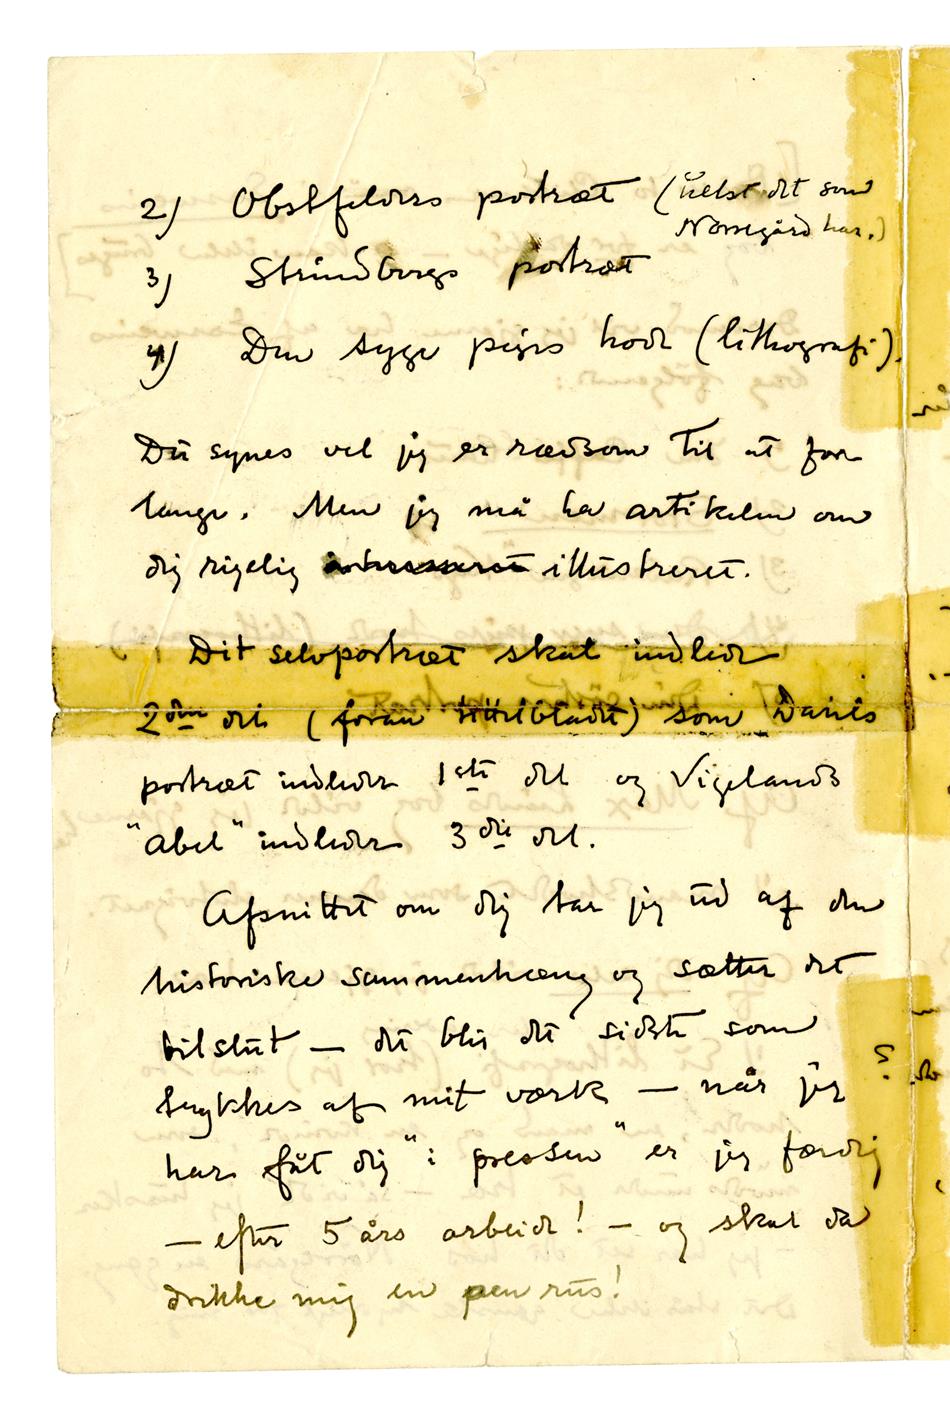 2) Obstfelders portræt (helst det som
Nørregård har.)
3) Strindbergs portræt
4) Den syge piges hode (lithografi).
Du synes vel jeg er rædsom til at for
lange. Men jeg må ha artikelen om
dig rigelig illustreret.
Dit selvportræt skal indlede
2den del (foran tittelbladet) som Dahls
portræt indleder 1ste del og Vigelands
"Abel" indleder 3die del.
Afsnittet om dig tar jeg ud af den
historiske sammenhæng og sætter det
tilslut — det blir det sidste som
trykkes af mit værk — når jeg
har fåt dig "i pressen" er jeg færdig
— efter 5 års arbeide! — og skal da
drikke mig en pen rus!